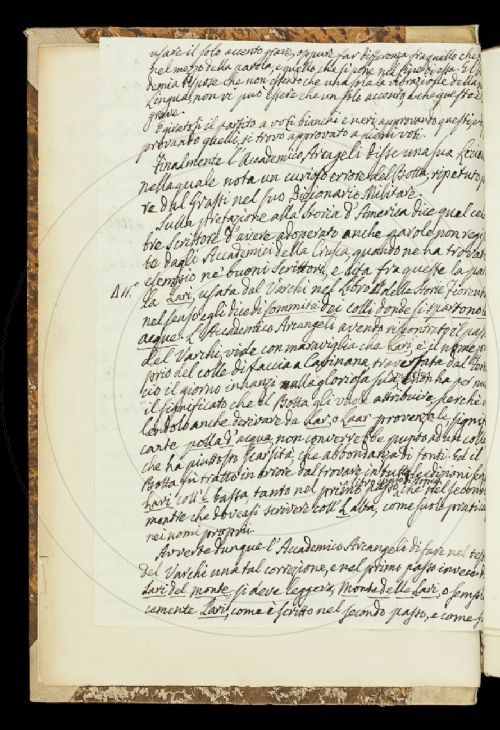 usare il solo accento grave, oppure far differenza fra quello che
nel mezzo della parola, e quello che si pone nel fine di essa. El
demia rispose che non essendo che una sola la vibrazione della
Lingua, non vi può essere che un solo accento, e che questo è
grave.
il partito a voti bianchi e neri, approvando questi, e
provando quelli, si trovò approvato a pieni voti.
Finalmente l'Accademico Arcangeli disse una sua Lezione
nella quale nota un curioso errore del Botta, ripetuto
re dal Grassi nel suo Dizionario Militare.
Sulla prefazione alla Storia d'America dice quel cele
bre Scrittore d'avere adoperato anche parole non regi
te dagli Accademici della Crusca quando ne ha trovato
esempio ne' buoni Scrittori, e cita fra queste la paro
la Lari, usata dal Varchi nel Libro delle Storie fiorent
Δ 11.°
nel senso egli dice di sommità dei colli donde si spartono
acque. L'Accademico Arcangeli avendo riscontrato il passo
del Varchi, vide con maraviglia che Lari è il nome pro
prio del colle di faccia a Gavinana, traversata dal
cio il giorno innanzi alla gloriosa sua, e non ha per
il significato che il Botta gli vuole attribuire, perchè
lendolo anche derivare da Lar, o Laar provenzale signifi
cante polla d'acqua, non converrebbe punto ad un colle
che ha piuttosto scarsità che abbondanza di fonti. Ed il
Botta fu tratto in errore dal trovare in tutte le edizioni
Lari coll'l bassa tanto nel primo che nel secondo
mentre che doveasi scrivere coll'L alta, come suole praticar
nei nomi proprii.
Avverte dunque l'Accademico Arcangeli di fare nel testo
del Varchi una tal correzione, e nel primo passo invece di
Lari del monte, si deve leggere, Monte delle Lari, o sempli
cemente Lari, come è scritto nel secondo passo, e come